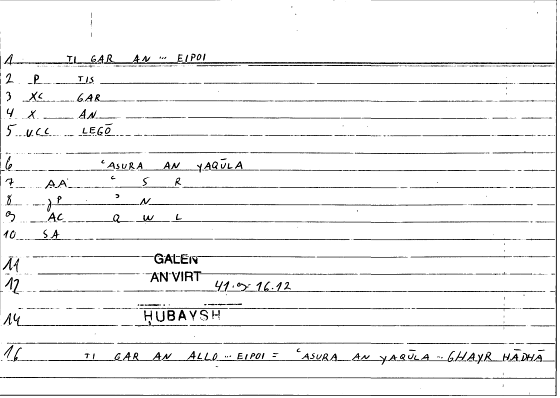 1 TI GAR AN ... EIPOI
2 P TIS
3 XC GAR
4 X AN
5 VCC LEGŌ
6 ʿASURA AN YAQŪLA
7 AA ʿ S R
8 JP ʾ N
9 AC Q W L
10 SA
11 GALEN
12 AN VIRT 41.9 16.12
14 ḤUBAYSH
16 TI GAR AN ALLO ... EIPOI = ʿASURA AN YAQŪLA ... GHAYR HĀDHĀ